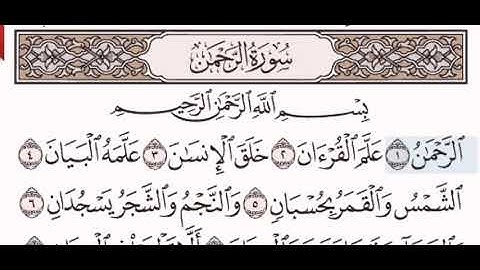 سُورَةُ الرَّحْمَٰن
بِسْمِ اللَّهِ الرَّحْمَٰنِ الرَّحِيمِ
الرَّحْمَٰنُ ١ عَلَّمَ الْقُرْءَانَ ٢ خَلَقَ الْإِنسَٰنَ ٣ عَلَّمَهُ الْبَيَانَ ٤
الشَّمْسُ وَالْقَمَرُ بِحُسْبَانٍ ٥ وَالنَّجْمُ وَالشَّجَرُ يَسْجُدَانِ ٦